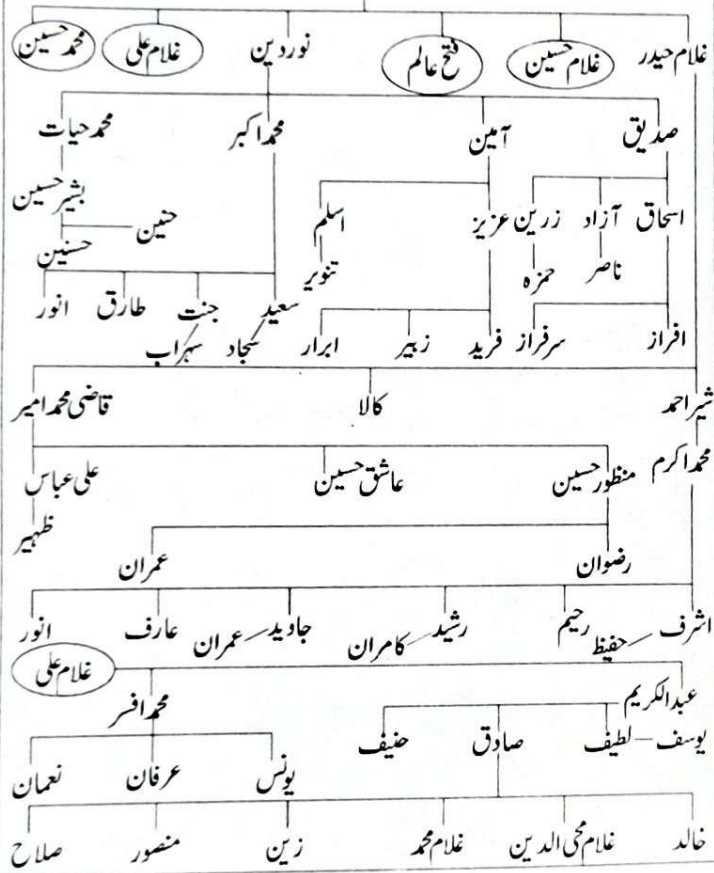 غلام حیدر غلام حسین فتح عالم نور دین غلام علی محمد حسین
صدیق آمین محمد اکبر محمد حیات
اسحاق آزاد زرین عزیز اسلم بشیر حسین
حنین
ناصر حمزہ تنویر حسنین
سعید جنت طارق انور
افراز سرفراز فرید زبیر ابرار سجاد سہراب
شیر احمد کالا قاضی محمد امیر
محمد اکرم منظور حسین عاشق حسین علی عباس
ظہیر
رضوان عمران
اشرف حفیظ رحیم رشید کامران جاوید عمران عارف انور
غلام علی
عبدالکریم محمد افسر
یوسف – لطیف صادق حنیف یونس عرفان نعمان
خالد غلام محی الدین غلام محمد زین منصور صلاح